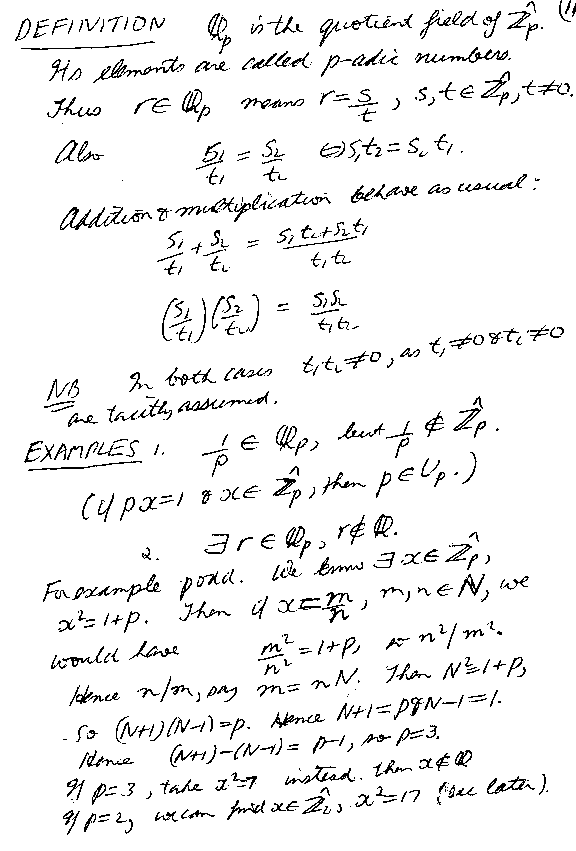 (11
DEFINITION ℚp is the quotient field of Ẑp.
Its elements are called p-adic numbers.
Thus r ∈ ℚp means r = s/t , s,t ∈ Ẑp, t≠0.
Also s₁/t₁ = s₂/t₂ ⇔ s₁t₂ = s₂t₁.
Addition & multiplication behave as usual :
s₁/t₁ + s₂/t₂ = s₁t₂+s₂t₁/t₁t₂
(s₁/t₁)(s₂/t₂) = s₁s₂/t₁t₂
NB In both cases t₁t₂≠0, as t₁≠0 & t₂≠0
are tacitly assumed.
EXAMPLES 1. 1/p ∈ ℚp, but 1/p ∉ Ẑp.
(if px=1 & x∈ Ẑp, then p∈Up.)
2. ∃ r∈ℚp, r∉ℚ.
For example p odd. We know ∃ x∈Ẑp,
x²=1+p. Then if x=m/n, m,n∈N, we
would have m²/n² = 1+p, so n²/m².
Hence n/m, say m=nN. Then N²=1+p,
So (N+1)(N-1)=p. Hence N+1=p & N-1=1.
Hence (N+1)-(N-1)= p-1, so p=3.
If p=3, take x²=7 instead. Then x∉ℚ
If p=2, we can find x∈Ẑ₂, x²=17 (see later).